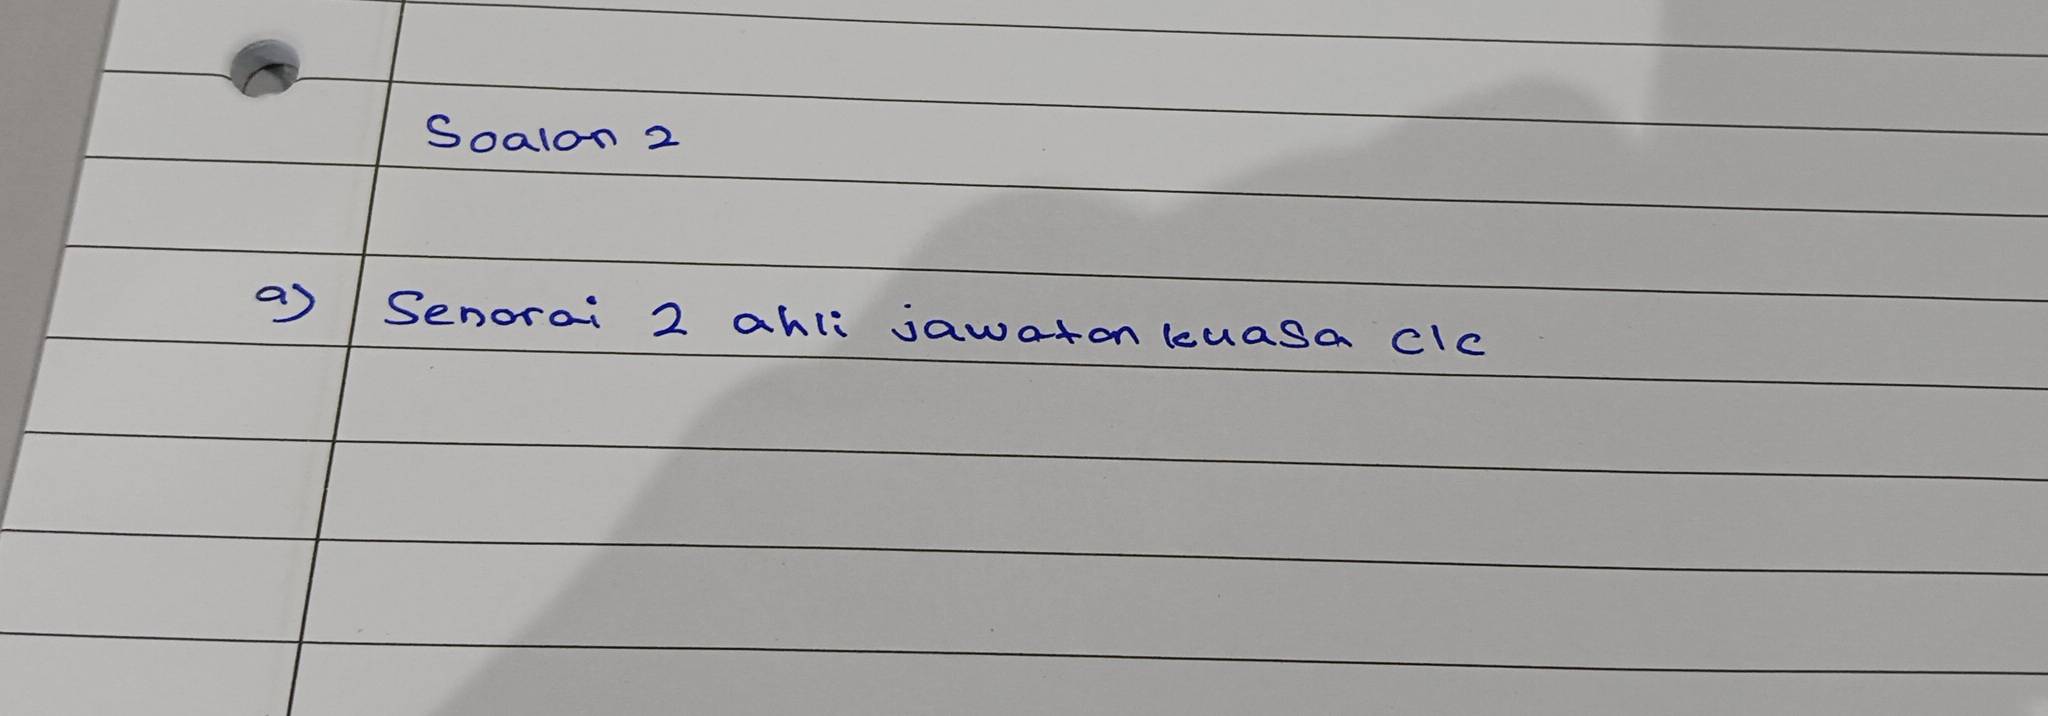 Soalan 2
a) Senarai 2 ahli jawatan kuasa clc